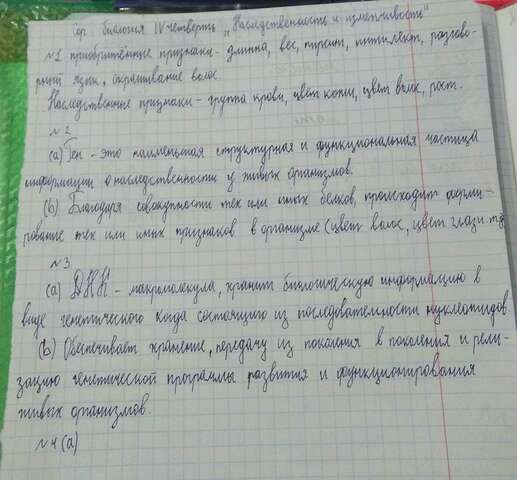 Сор биология IV четверть „Наследственность и изменчивость"
№1 приобритённые признаки - длинна, вес, пирсинг, интилект, разгово-
рный язык, окрашивание волос.
Наследственные признаки - группа крови, цвет кожи, цвет волос, рост.
№2
(а) Ген - это наименьшая структурная и функциональная частица
информации о наследственности у живых организмов.
(b) Благодаря совокупности тех или иных белков, происходит форми-
рование тех или иных признаков в организме (цвет волос, цвет глаз и тд
№3
(а) ДНК - макромолекула, хранит биологическую информацию в
виде генетического кода состоящего из последовательности нуклеотидов.
(b) Обеспечивает хранение, передачу из поколения в поколения и рели-
зацию генетической программы развития и функционирования
живых организмов.
№4 (а)